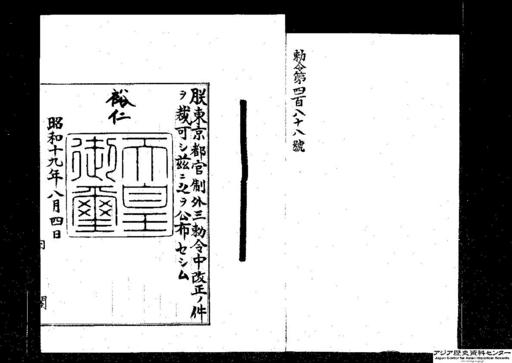 勅令第四百八十八號
朕東京都官制外三勅令中改正ノ件
ヲ裁可シ茲ニ之ヲ公布セシム
裕仁
天皇
御璽
昭和十九年八月四日
内閣
アジア歴史資料センター
Japan Center for Asian Historical Records